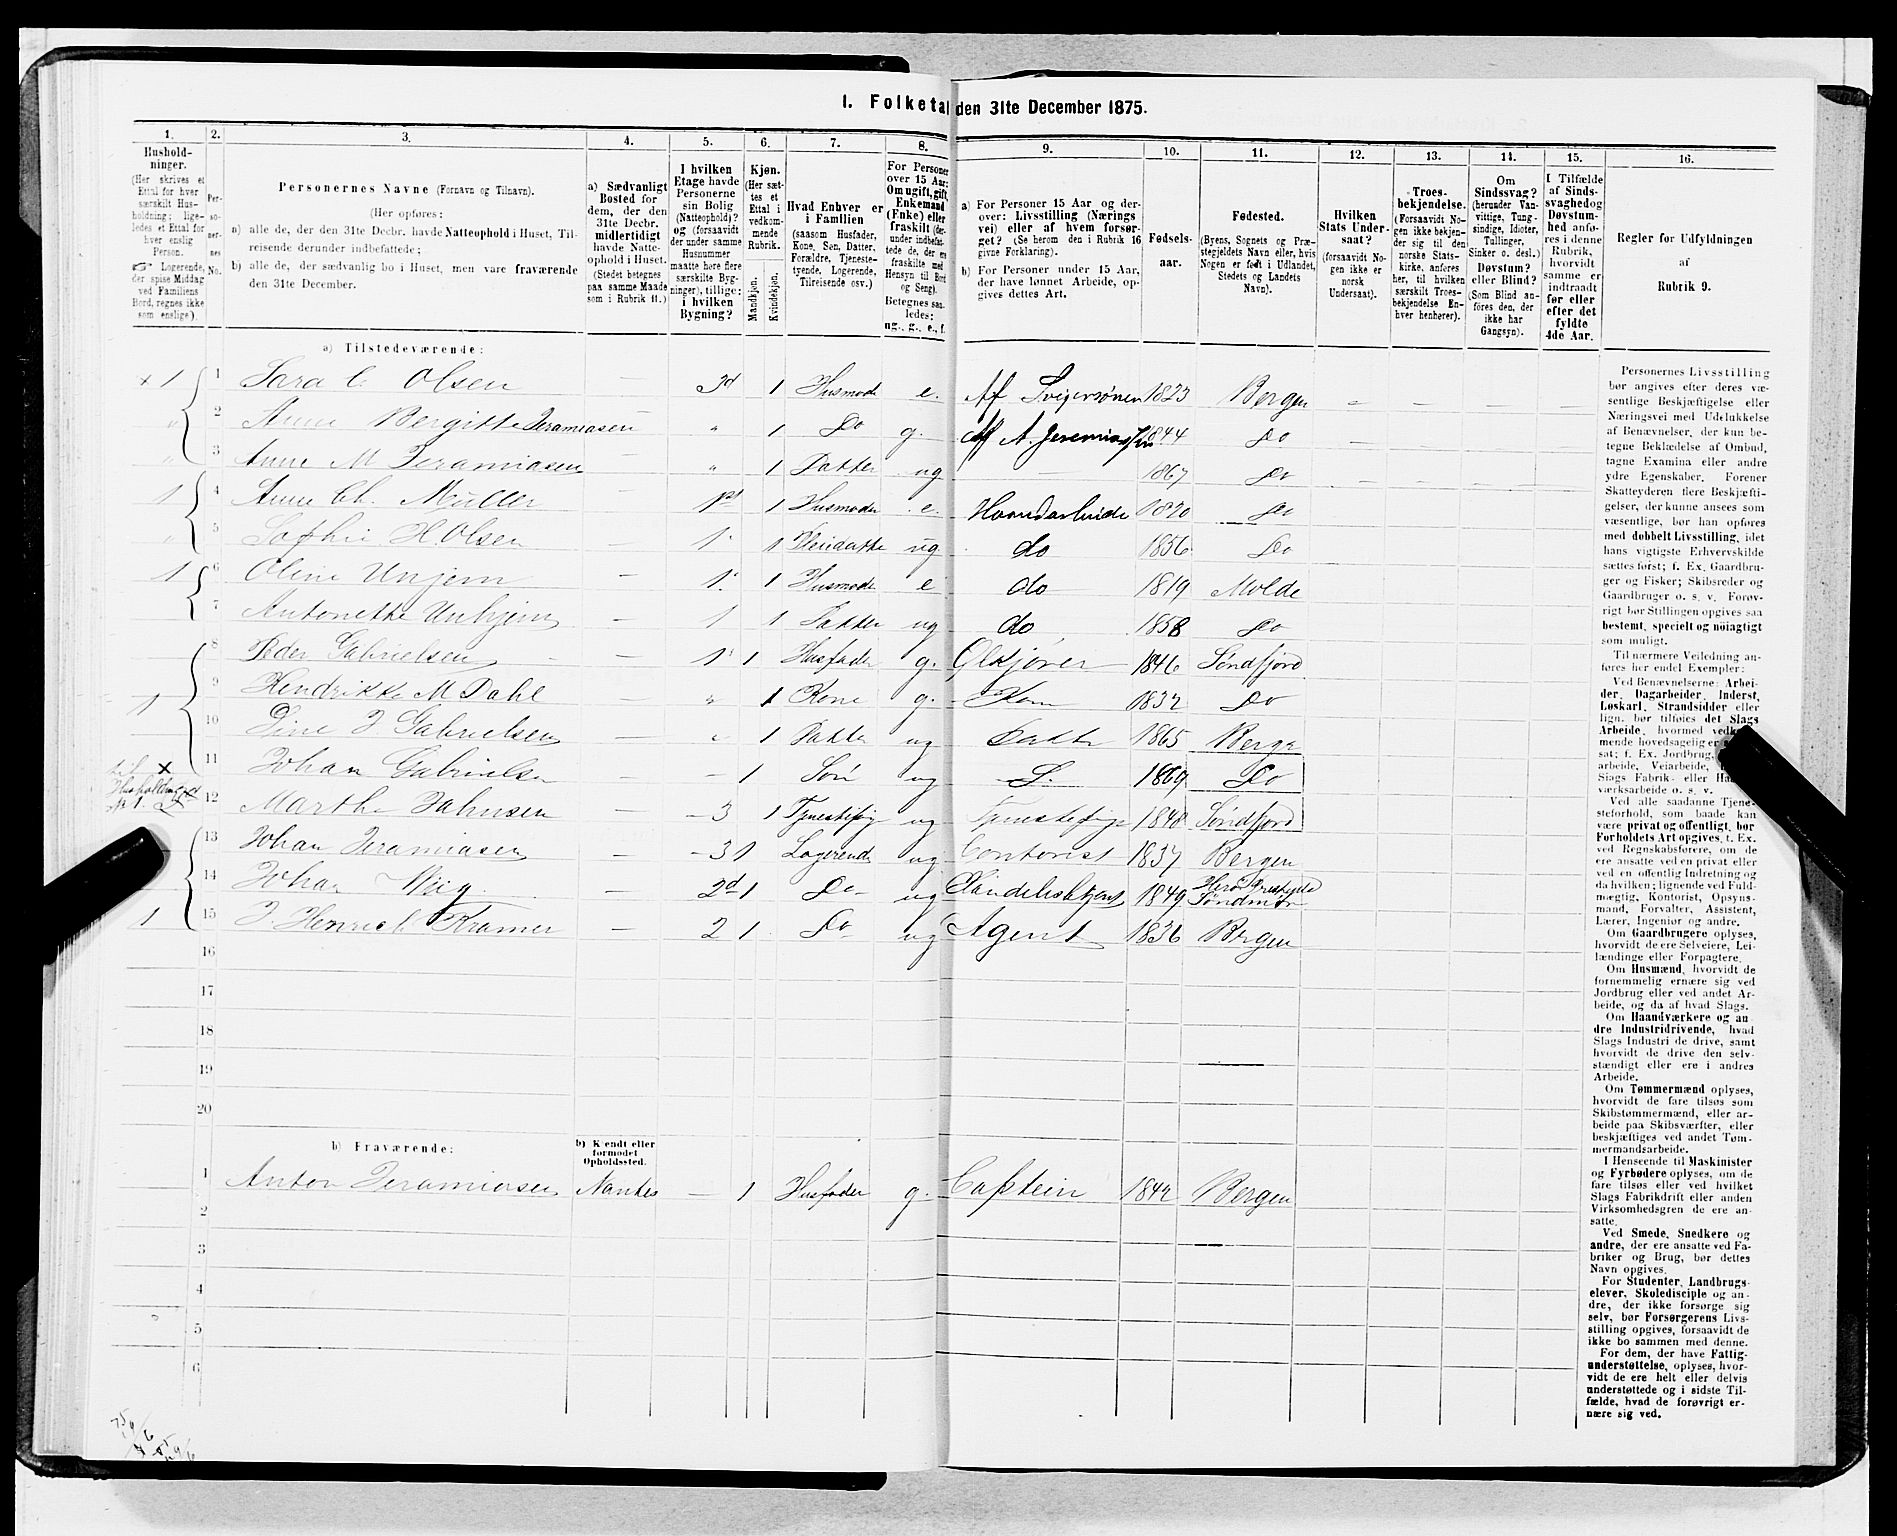 1. Folketal den 31te December 1875.
1.
Hushold-
ninger.
(Her skrives et
Ettal for hver
særskilt Hus-
holdning; lige-
ledes et Ettal for
hver enslig
Person.
☞ Logerende,
der spise Middag
ved Familiens
Bord, regnes ikke
som enslige).
2.
Per-
so-
ner-
nes
No.
3.
Personernes Navne (Fornavn og Tilnavn).
(Her opføres:
a) alle de, der den 31te Decbr. havde Natteophold i Huset, Til-
reisende derunder indbefattede;
b) alle de, der sædvanlig bo i Huset, men vare fraværende
den 31te December.
4.
a) Sædvanligt
Bosted for
dem, der den
31te Decbr.
midlertidigt
havde Natte-
ophold i Huset.
(Stedet betegnes
paa samme Maade
som i Rubrik 11.)
5.
I hvilken
Etage havde
Personerne
sin Bolig
(Natteophold)?
og (forsaavidt
der under samme
Husnummer
maatte høre flere
særskilte Byg-
ninger), tillige:
i hvilken
Bygning?
6.
Kjøn.
(Her sæt-
tes et
Ettal i
vedkom-
mende
Rubrik.
Mandkjøn.
Kvindekjøn.
7.
Hvad Enhver er
i Familien
(saasom Husfader,
Kone, Søn, Datter,
Forældre, Tjeneste-
tyende, Logerende,
Tilreisende osv.)
8.
For Personer
over 15 Aar:
Om ugift, gift,
Enkemand
(Enke) eller
fraskilt (der-
under indbefat-
tede de, der ere
fraskilte med
Hensyn til Bord
og Seng).
Betegnes saa-
ledes:
ug., g., e., f.
9.
a) For Personer 15 Aar og der-
over: Livsstilling (Nærings
vei) eller af hvem forsør-
get? (Se herom den i Rubrik 16
givne Forklaring).
b) For Personer under 15 Aar,
der have lønnet Arbeide, op-
gives dettes Art.
10.
Fødsels-
aar.
11.
Fødested.
(Byens, Sognets og Præ-
stegjeldets Navn eller, hvis
Nogen er født i Udlandet,
Stedets og Landets
Navn).
12.
Hvilken
Stats Under-
saat?
(forsaavidt No-
gen ikke er
norsk
Undersaat).
13.
Troes-
bekjendelse.
(Forsaavidt No-
gen ikke bekjen-
der sig til den
norske Stats-
kirke, anføres
her, til hvilken
særskilt Troes-
bekjendelse En-
hver henhører).
14.
Om
Sindssvag?
(herunder Van-
vittige, Tung-
sindige, Idioter,
Tullinger,
Sinker o. desl.)
Døvstum?
eller Blind?
(Som Blind an-
føres den, der
ikke har
Gangsyn).
15.
I Tilfælde
af Sinds-
svaghed og
Døvstum-
hed anfø-
res i denne
Rubrik,
hvorvidt
samme er
indtraadt
før eller
efter det
fyldte
4de Aar.
16.
Regler for Udfyldningen
af
Rubrik 9.
a) Tilstedeværende:
x 1 1 Sara C. Olsen — 3d 1 Husmode e. Af Svigersønen 1823 Bergen - -
2 Anne Bergitte Jeramiasen — " 1 Do g. Af A. Jeremiassen 1844 Do
3 Anne M Jeramiasen — " 1 Datter ug — 1867 Do
1 4 Anne Ch. Müller — 1st 1 Husmoder e. Haandarbeide 1820 Do
5 Sophie H. Olsen — 1. 1 Pleiedatte ug do 1856 Do
1 6 Oline Unjem — 1. 1 Husmode e do 1819 Molde
7 Antonette Unhjem — 1 1 Datter ug do 1858 Do
8 Peder Gabrielsen 1 1 Husfader g. Ølkjører 1846 Søndfjord
1 9 Hendrikke M Dahl — " 1 Kone g. Kone 1832 Do
10 Line J. Gabrielsen — " 1 Datter ug Datter 1865 Bergen
til x 11 Johan Gabrielsen — - 1 Søn ug S. 1869 Do
Husholdning
No 1. 12 Marthe Johnsen -3 1 Tjenestepig ug Tjenestepige 1848 Søndfjord
13 Johan Jeramiasen — -3 1 Logerend ug Contorist 1837 Bergen
14 Johan Wiig — 2d 1 Do ug Handelsbetjent 1849 Herø Prestgjeld
Søndmør
1 15 J. Henrich Kramer — 2 1 Do ug Agent 1836 Bergen
16
17
18
19
20
b) Fraværende:
b) Kjendt eller
formodet
Opholdssted.
1 Anton Jeramiasen Nantes — 1 Husfader g. Captein 1842 Bergen
2
3
4
5
6
Personernes Livsstilling
bør angives efter deres væ-
sentlige Beskjæftigelse eller
Næringsvei med Udelukkelse
af Benævnelser, der kun be-
tegne Beklædelse af Ombud,
tagne Examina eller andre
ydre Egenskaber. Forener
Skatteyderen flere Beskjæfti-
gelser, der kunne ansees som
væsentlige, bør han opføres
med dobbelt Livsstilling, idet
hans vigtigste Erhvervskilde
sættes først; f. Ex. Gaardbru-
ger og Fisker; Skibsreder og
Gaardbruger o. s. v. Forøv-
rigt bør Stillingen opgives saa
bestemt, specielt og nøiagtigt
som muligt.
Til nærmere Veiledning an-
føres her endel Exempler:
Ved Benævnelserne: Arbei-
der, Dagarbeider, Inderst,
Løskarl, Strandsidder eller
lign. bør tilføies det Slags
Arbeide, hvormed vedkom-
mende hovedsagelig er
sat; f. Ex. Jordbrug,
arbeide, Veiarbeide,
Slags Fabrik- eller Haand-
værksarbeide o. s. v.
Ved alle saadanne Tjene-
steforhold, som baade kan
være privat og offentligt, bør
Forholdets Art opgives, t. Ex.
ved Regnskabsførere, om de
ere ansatte ved en privat eller
ved en offentlig Indretning og
da hvilken; lignende ved Fuld-
mægtig, Kontorist, Opsyns-
mand, Forvalter, Assistent,
Lærer, Ingeniør og andre.
Om Gaardbrugere oplyses,
hvorvidt de ere Selveiere, Lei-
lændinge eller Forpagtere.
Om Husmænd, hvorvidt de
fornemmelig ernære sig ved
Jordbrug eller ved andet Ar-
beide, og da af hvad Slags.
Om Haandværkere og an
dre Industridrivende, hvad
Slags Industri de drive, samt
hvorvidt de drive den selv-
stændigt eller ere i andres
Arbeide.
Om Tømmermænd oplyses,
hvorvidt de fare tilsøs som
Skibstømmermænd, eller ar-
beide paa Skibsværfter, eller
beskjæftiges ved andet Tøm-
mermandsarbeide.
I Henseende til Maskinister
og Fyrbødere oplyses, om de
fare tilsøs eller ved hvilket
Slags Fabrikdrift eller anden
Virksomhedsgren de ere an-
satte.
Ved Smede, Snedkere og
andre, der ere ansatte ved Fa-
briker og Brug, bør dettes
Navn opgives.
For Studenter, Landbrugs-
elever, Skoledisciple og an-
dre, der ikke forsørge sig
selv, bør Forsørgerens Livs-
stilling opgives, forsaavidt de
ikke bo sammen med denne.
For dem, der have Fattig-
understøttelse, oplyses, hvor-
vidt de ere helt eller delvis
understøttede og i sidste Til-
fælde, hvad de forøvrigt er-
nære sig ved.